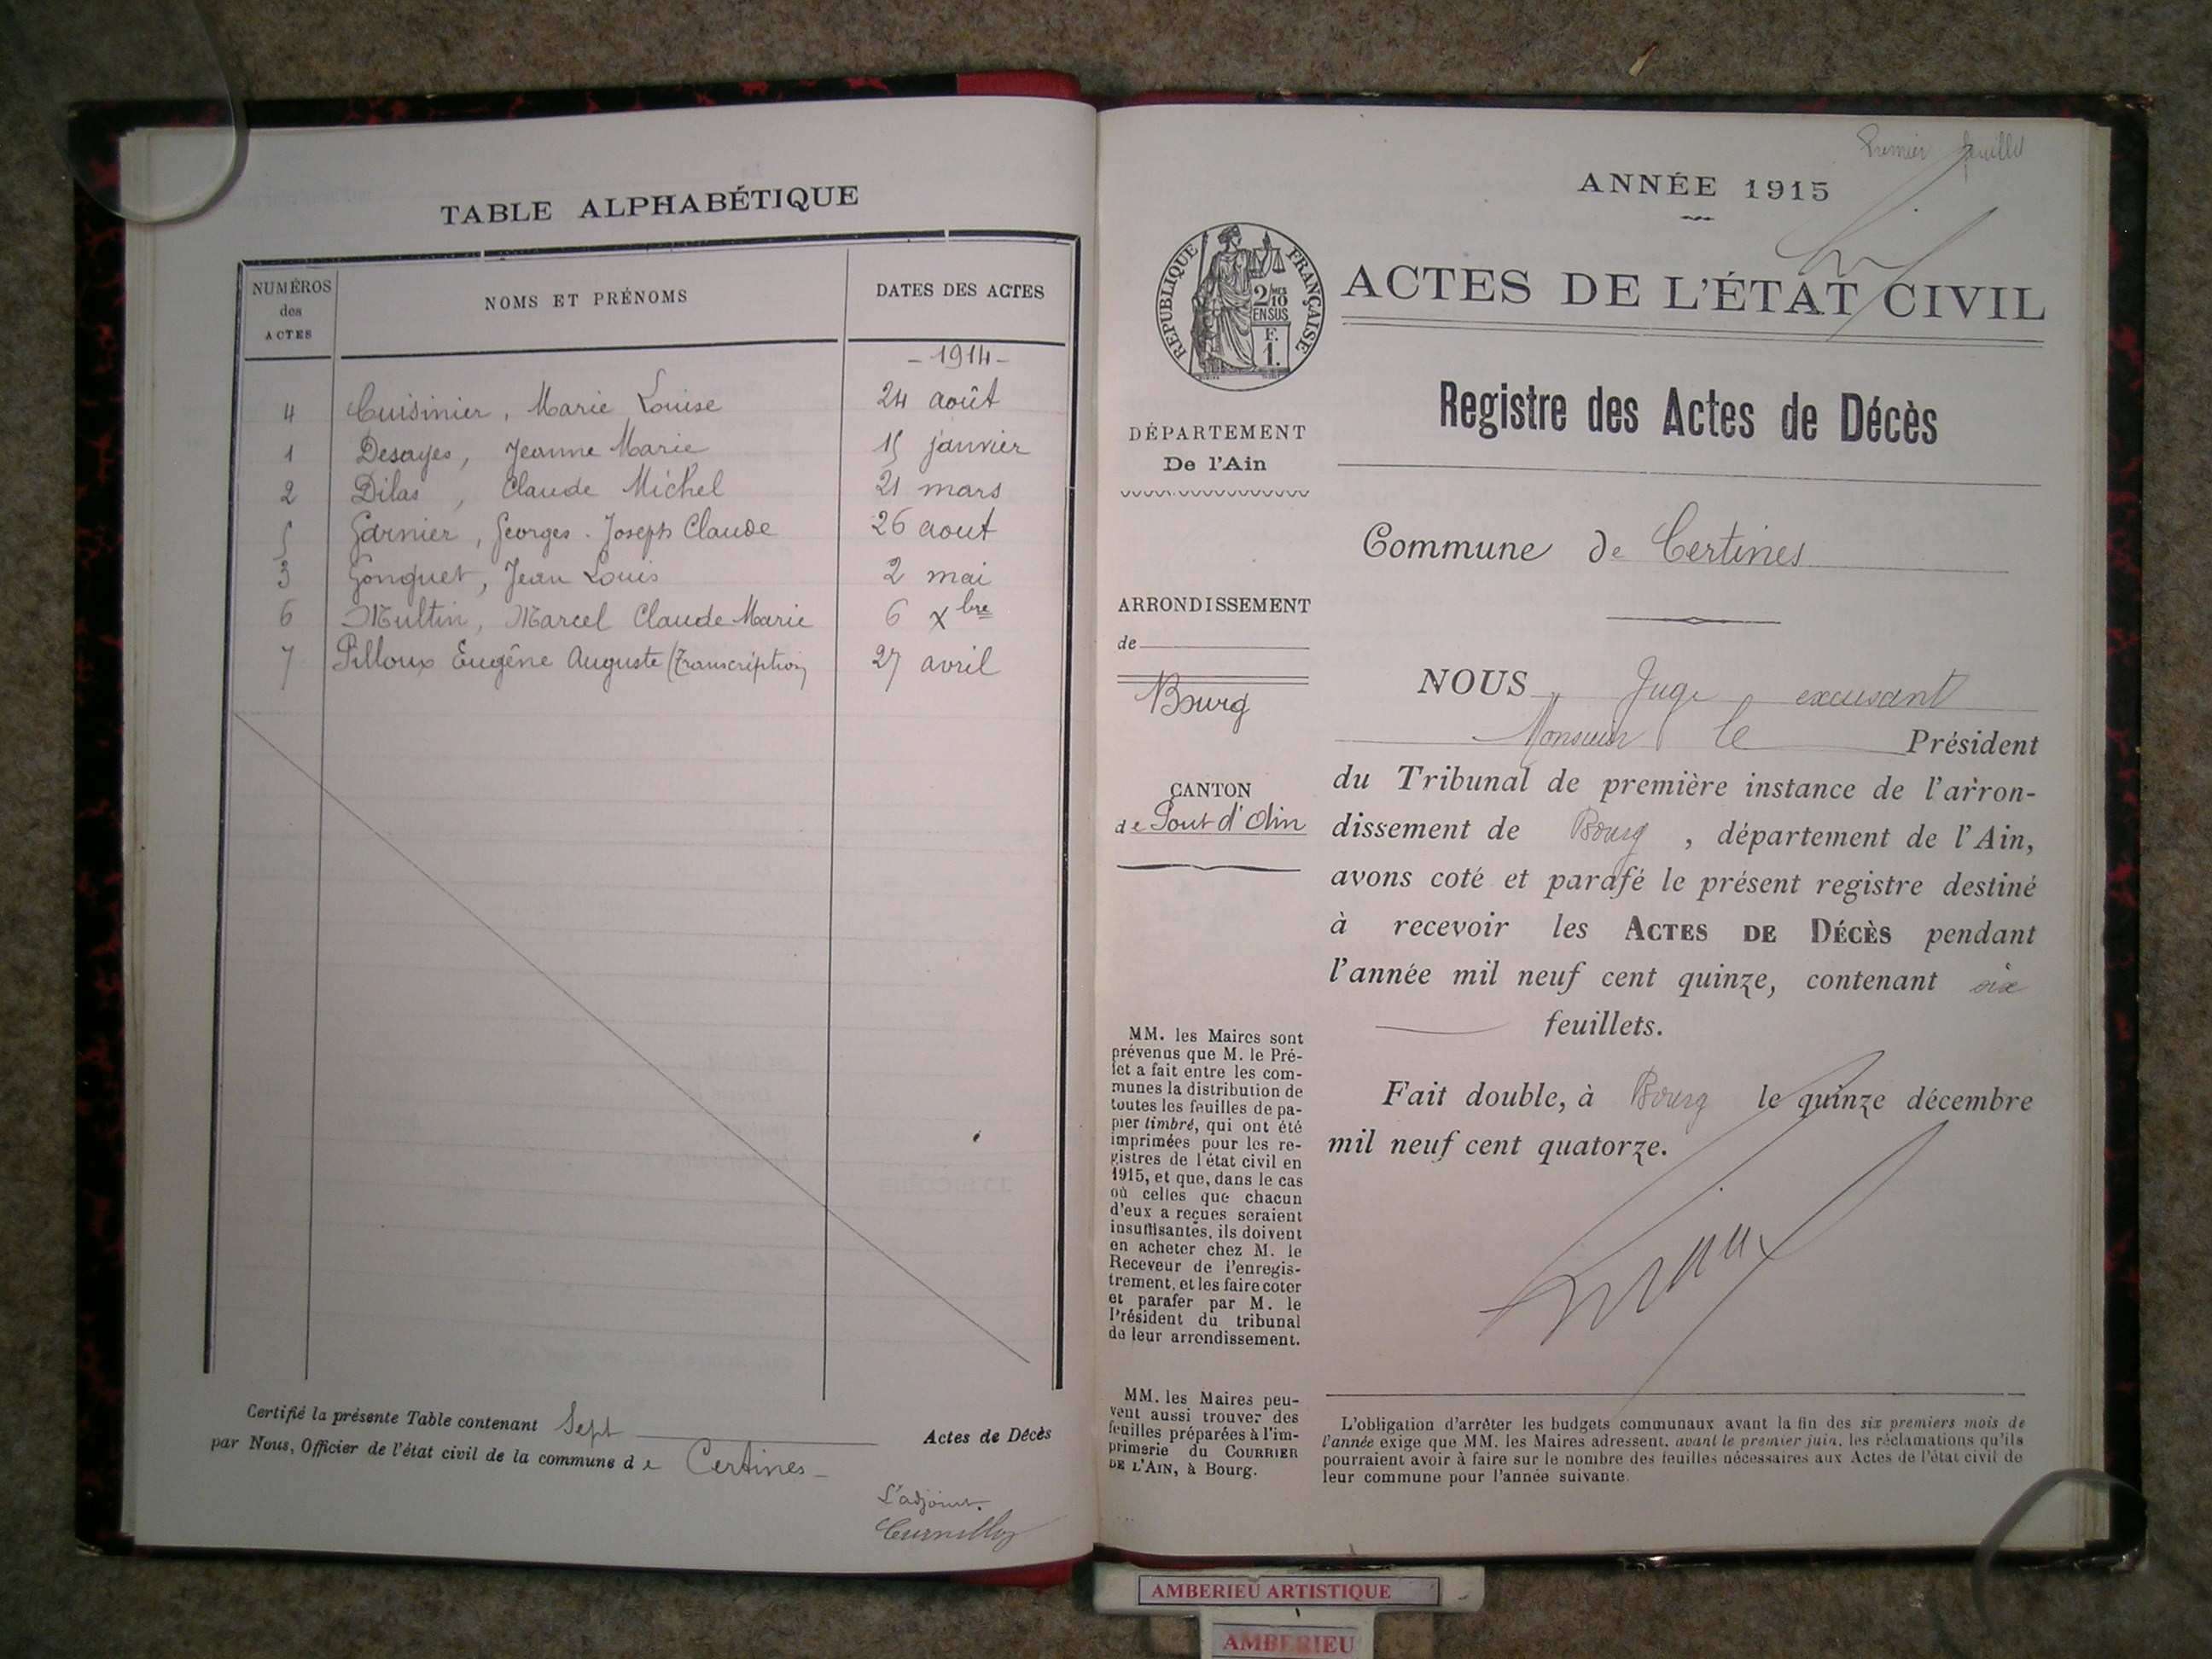 TABLE ALPHABÉTIQUE
NUMÉROS
des
ACTES
NOMS ET PRÉNOMS
DATES DES ACTES
- 1914 -
4 Cuisinier, Marie Louise 24 août
1 Desayes, Jeanne Marie 15 janvier
2 Dilas, Claude Michel 21 mars
5 Garnier, Georges. Joseph Claude 26 aout
3 Gonguet, Jean Louis 2 mai
6 Multin, Marcel Claude Marie 6 xbre
7 Pilloux Eugêne Auguste (Transcription 27 avril
Certifié la présente Table contenant Sept Actes de Décès
par Nous, Officier de l'état civil de la commune de Certines
L'adjoint.
Premier feuillet
ANNÉE 1915
RÉPUBLIQUE FRANÇAISE
2/10
EN SUS
F.
1.
ACTES DE L'ÉTAT CIVIL
Registre des Actes de Décès
DÉPARTEMENT
De l'Ain
Commune de Certines
ARRONDISSEMENT
de
Bourg
CANTON
de Pont d'Ain
NOUS, Juge excusant
Monsieur le Président
du Tribunal de première instance de l'arron-
dissement de Bourg, département de l'Ain,
avons coté et parafé le présent registre destiné
à recevoir les ACTES DE DÉCÈS pendant
l'année mil neuf cent quinze, contenant six
feuillets.
Fait double, à Bourg le quinze décembre
mil neuf cent quatorze.
MM. les Maires sont
prévenus que M. le Pré-
fet a fait entre les com-
munes la distribution de
toutes les feuilles de pa-
pier timbré, qui ont été
imprimées pour les re-
gistres de l'état civil en
1915, et que, dans le cas
où celles que chacun
d'eux a reçues seraient
insuffisantes, ils doivent
en acheter chez M. le
Receveur de l'enregis-
trement, et les faire coter
et parafer par M. le
Président du tribunal
de leur arrondissement.
MM. les Maires peu-
vent aussi trouver des
feuilles préparées à l'im-
primerie du COURRIER
DE L'AIN, à Bourg.
L'obligation d'arrêter les budgets communaux avant la fin des six premiers mois de
l'année exige que MM. les Maires adressent, avant le premier juin, les réclamations qu'ils
pourraient avoir à faire sur le nombre des feuilles nécessaires aux Actes de l'état civil de
leur commune pour l'année suivante.
AMBERIEU ARTISTIQUE
AMBERIEU